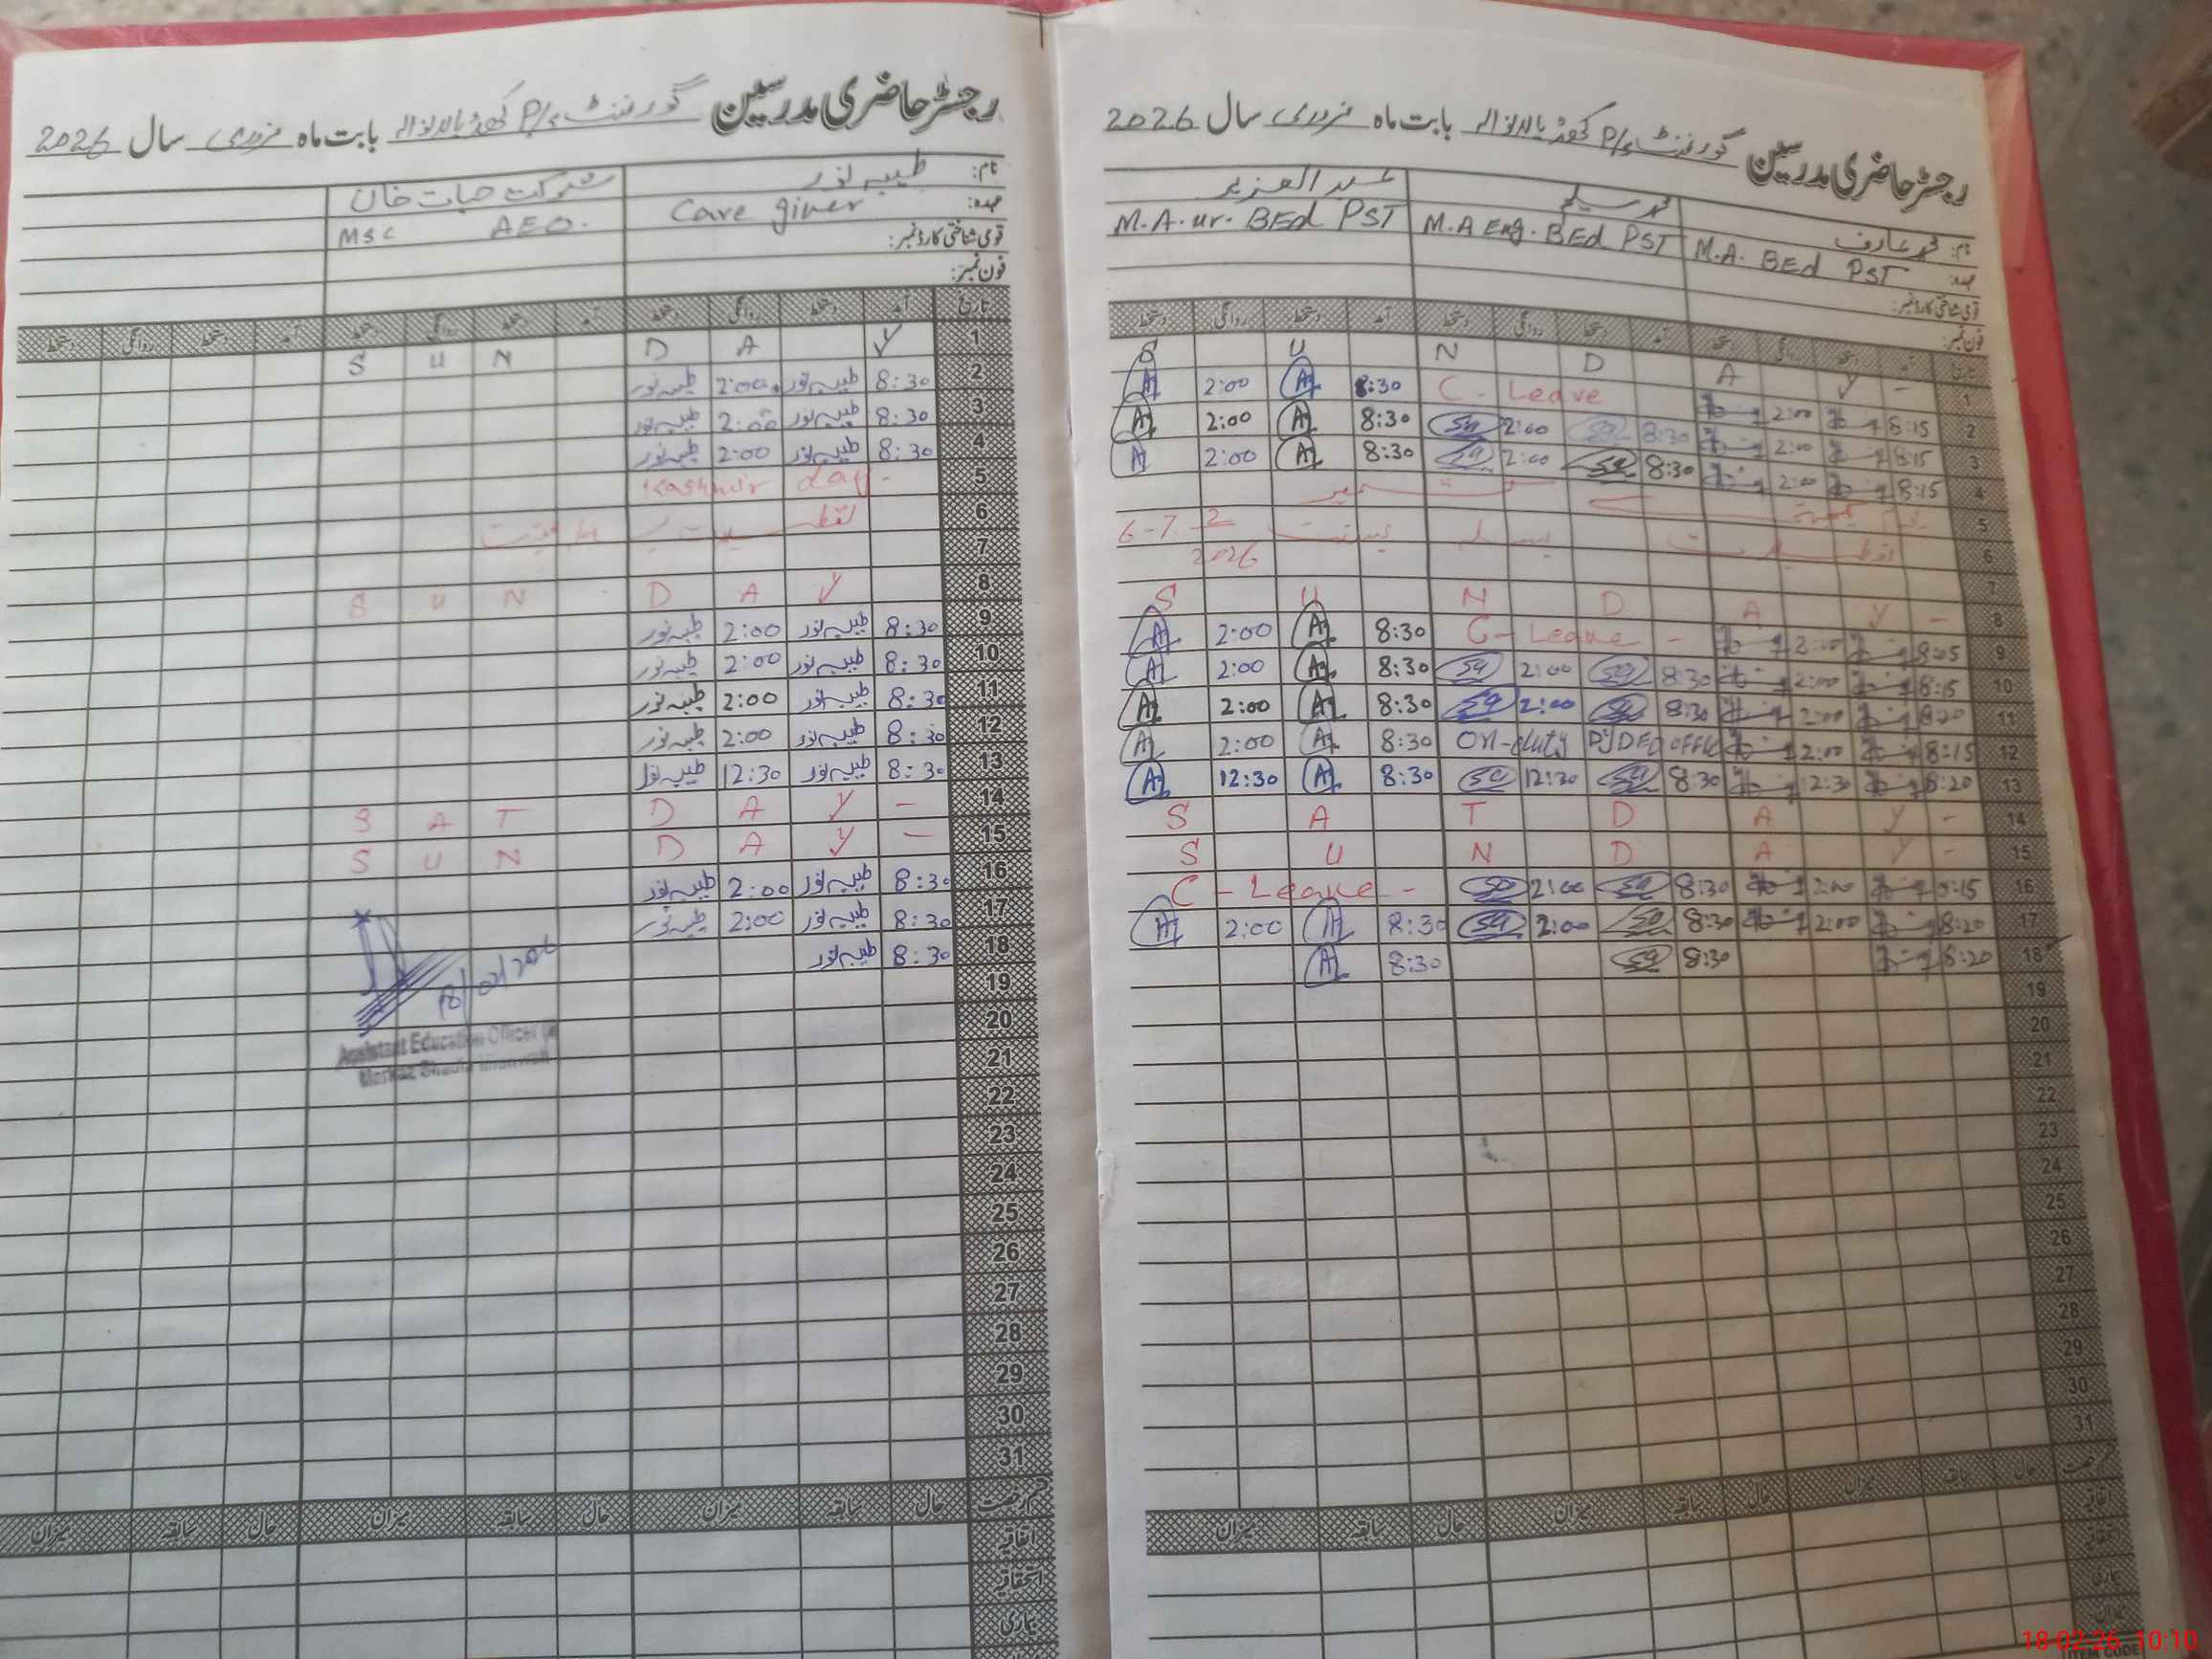 رجسٹر حاضری مدرسین گورنمنٹ P/s بابت ماہ فروری سال 2026
نام: طیبہ نور شوکت حیات خان
عہدہ: Care giver AEO. MSc
قومی شناختی کارڈ نمبر:
فون نمبر:
تاریخ آمد دستخط روانگی دستخط آمد دستخط روانگی دستخط آمد دستخط روانگی دستخط
1 S U N D A Y
2 8:30 طیبہ نور 2:00 طیبہ نور
3 8:30 طیبہ نور 2:00 طیبہ نور
4 8:30 طیبہ نور 2:00 طیبہ نور
5 Kashmir day -
6
7
8 S U N D A Y
9 8:30 طیبہ نور 2:00 طیبہ نور
10 8:30 طیبہ نور 2:00 طیبہ نور
11 8:30 طیبہ نور 2:00 طیبہ نور
12 8:30 طیبہ نور 2:00 طیبہ نور
13 8:30 طیبہ نور 12:30 طیبہ نور
14 S A T D A Y -
15 S U N D A Y -
16 8:30 طیبہ نور 2:00 طیبہ نور
17 8:30 طیبہ نور 2:00 طیبہ نور
18 8:30 طیبہ نور
18/02/2026
Assistant Education Officer
Markaz
19
20
21
22
23
24
25
26
27
28
29
30
31
قسم رخصت حال سابقہ میزان حال سابقہ میزان حال سابقہ میزان
اتفاقیہ
استحقاقیہ
بیماری
رجسٹر حاضری مدرسین گورنمنٹ P/s بابت ماہ فروری سال 2026
نام: محمد عارف محمد سلیم عبدالعزیز
عہدہ: M.A. BEd PST M.A Eng. BEd PST M.A. ur. BEd PST
قومی شناختی کارڈ نمبر:
فون نمبر:
تاریخ آمد دستخط روانگی دستخط آمد دستخط روانگی دستخط آمد دستخط روانگی دستخط
1 S U N D A Y -
2 8:15 2:00 C - Leave 8:30 2:00
3 8:15 2:00 8:30 2:00 8:30 2:00
4 8:15 2:00 8:30 2:00 8:30 2:00
5 یوم یکجہتی کشمیر
6 6-7. 2
7 2026
8 S U N D A Y -
9 8:05 2:00 C - Leave - 8:30 2:00
10 8:15 2:00 8:30 2:00 8:30 2:00
11 8:20 2:00 8:30 2:00 8:30 2:00
12 8:15 2:00 On-duty Dy DEO office 8:30 2:00
13 8:20 12:30 8:30 12:30 8:30 12:30
14 S A T D A Y -
15 S U N D A Y -
16 8:15 2:00 8:30 2:00 C - Leave -
17 8:20 2:00 8:30 2:00 8:30 2:00
18 8:20 8:30 8:30
19
20
21
22
23
24
25
26
27
28
29
30
31
قسم رخصت حال سابقہ میزان حال سابقہ میزان حال سابقہ میزان
18-02-26 10:10
ITEM CODE